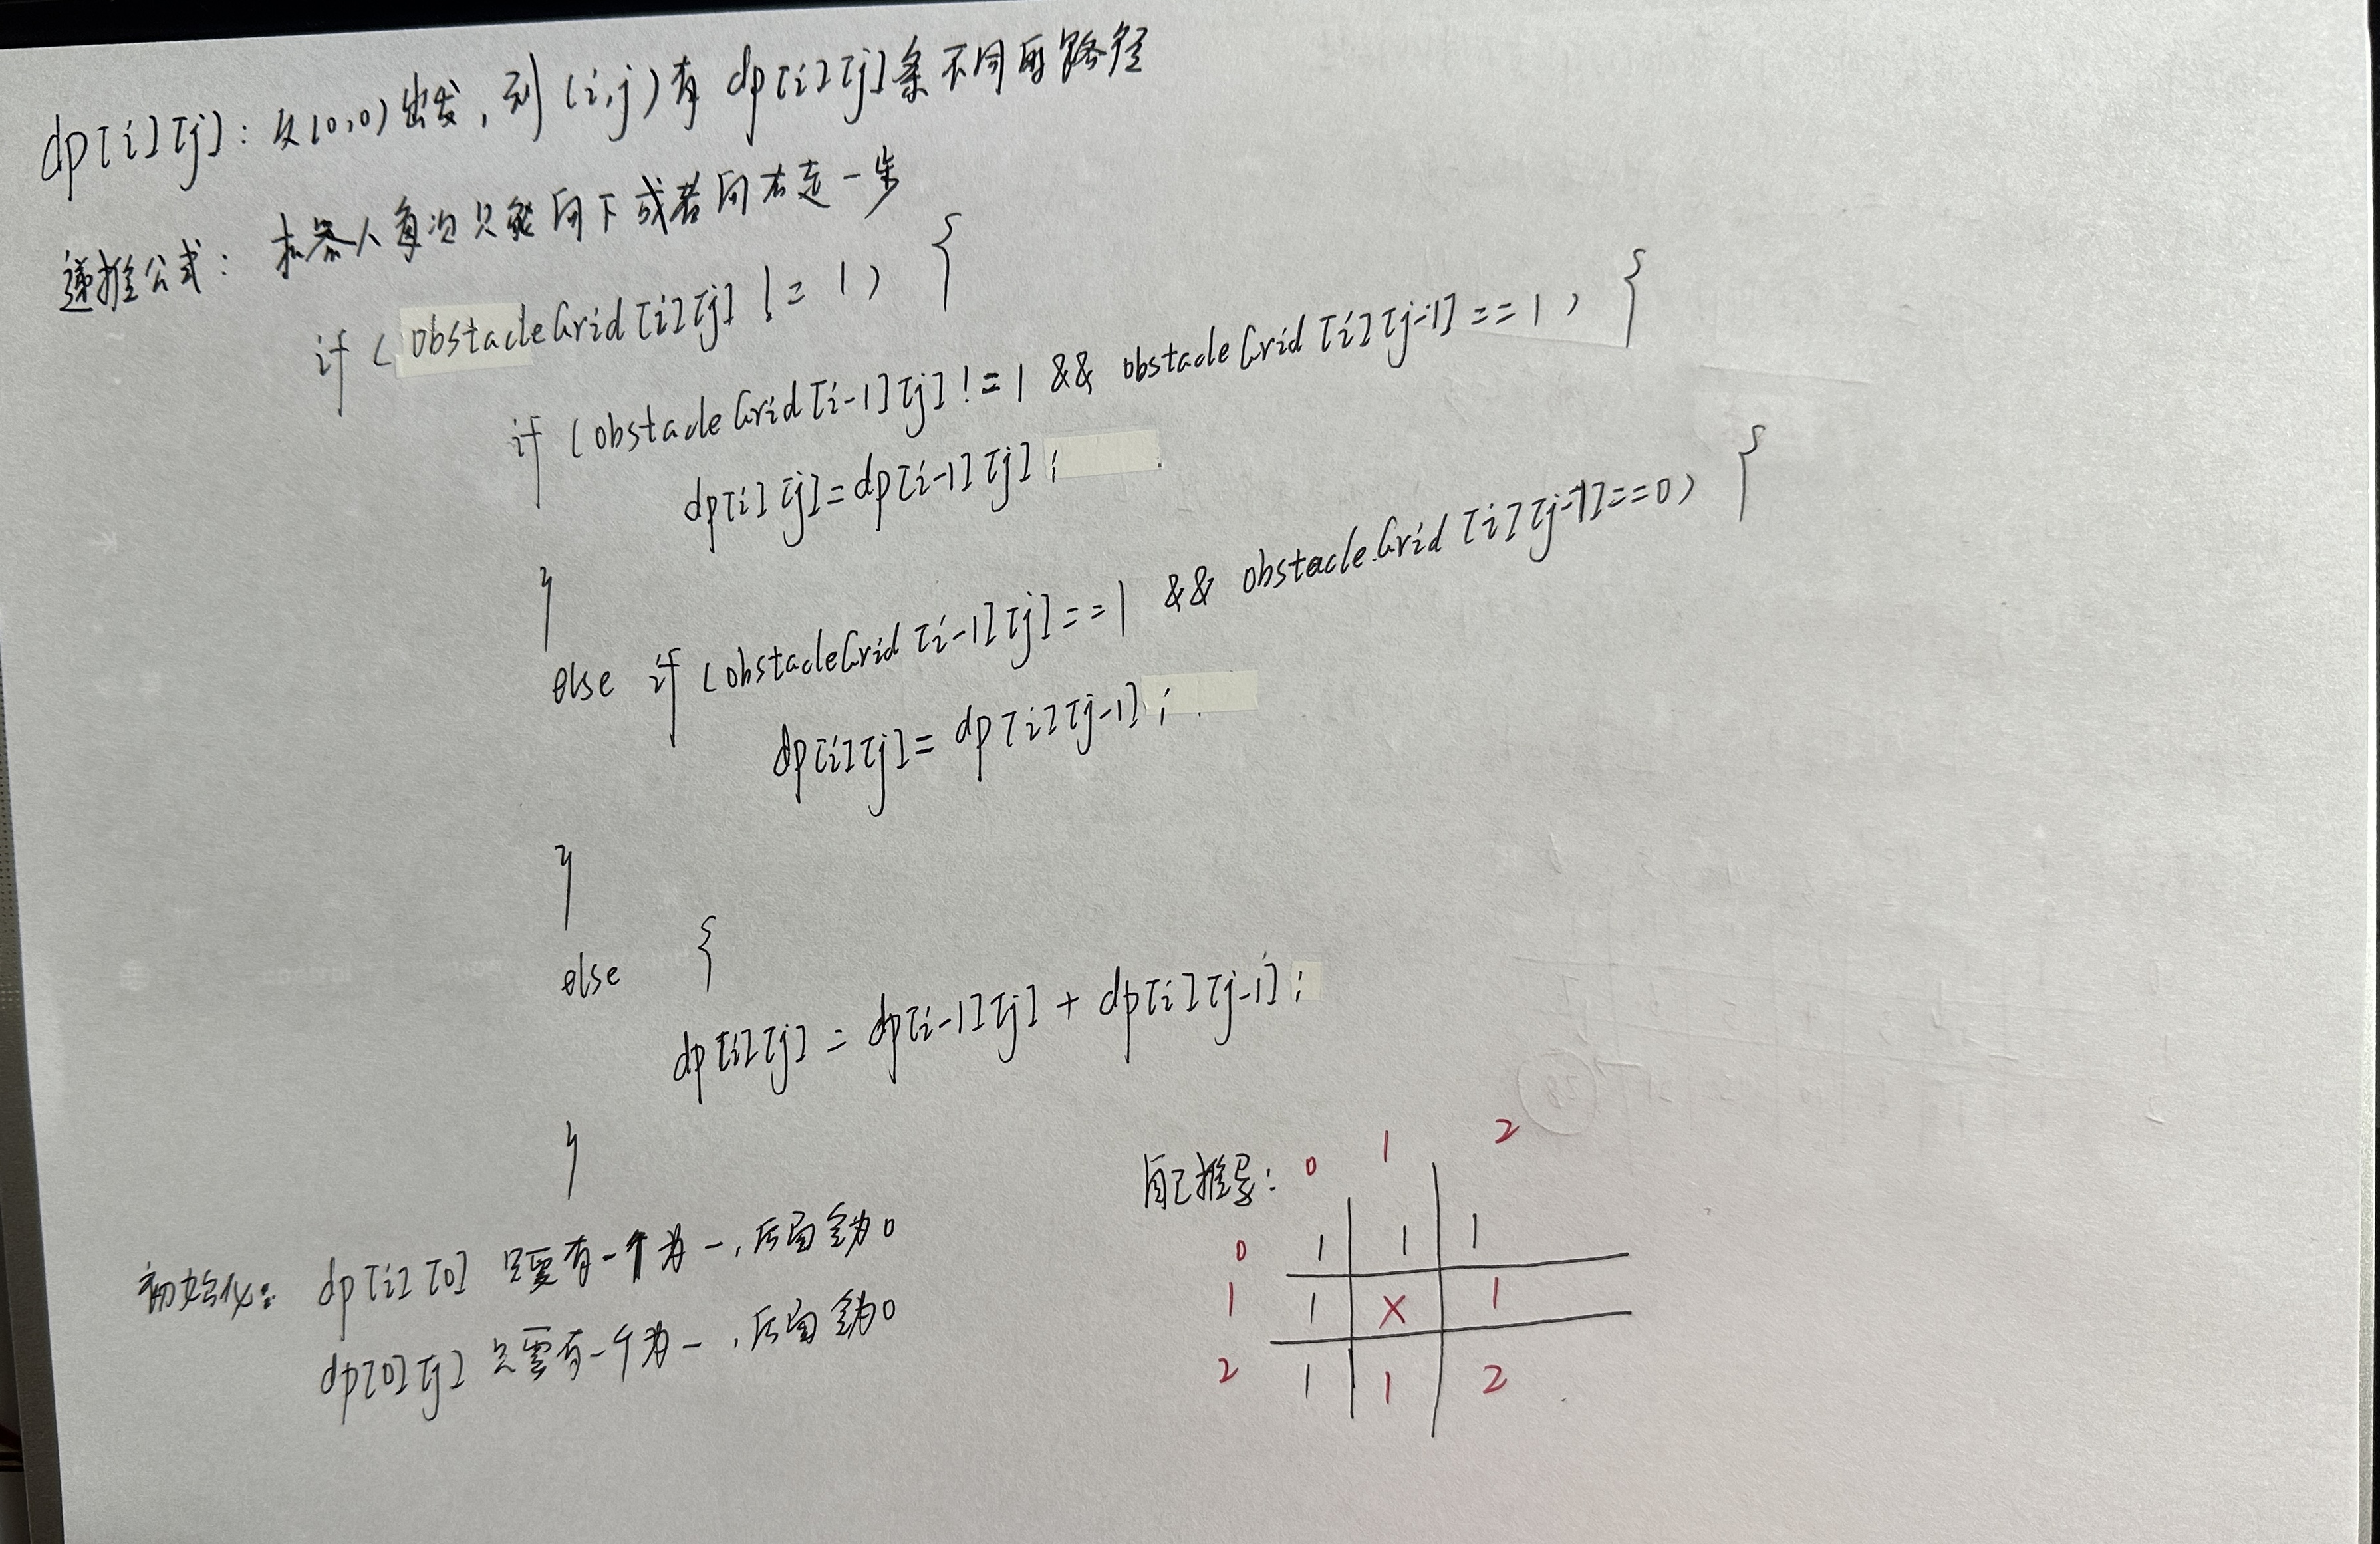 dp[i][j]: 从(0,0)出发, 到(i,j)有dp[i][j]条不同的路径
递推公式: 机器人每次只能向下或者向右走一步
if (obstacleGrid[i][j] != 1) {
if (obstacleGrid[i-1][j] != 1 && obstacleGrid[i][j-1] == 1) {
dp[i][j] = dp[i-1][j];
}
else if (obstacleGrid[i-1][j] == 1 && obstacleGrid[i][j-1] == 0) {
dp[i][j] = dp[i][j-1];
}
else {
dp[i][j] = dp[i-1][j] + dp[i][j-1];
}
初始化: dp[i][0] 只要有一个为一, 后面全为0
dp[0][j] 只要有一个为一, 后面全为0
自己推导: 0 1 2
0 1 1 1
1 1 X 1
2 1 1 2